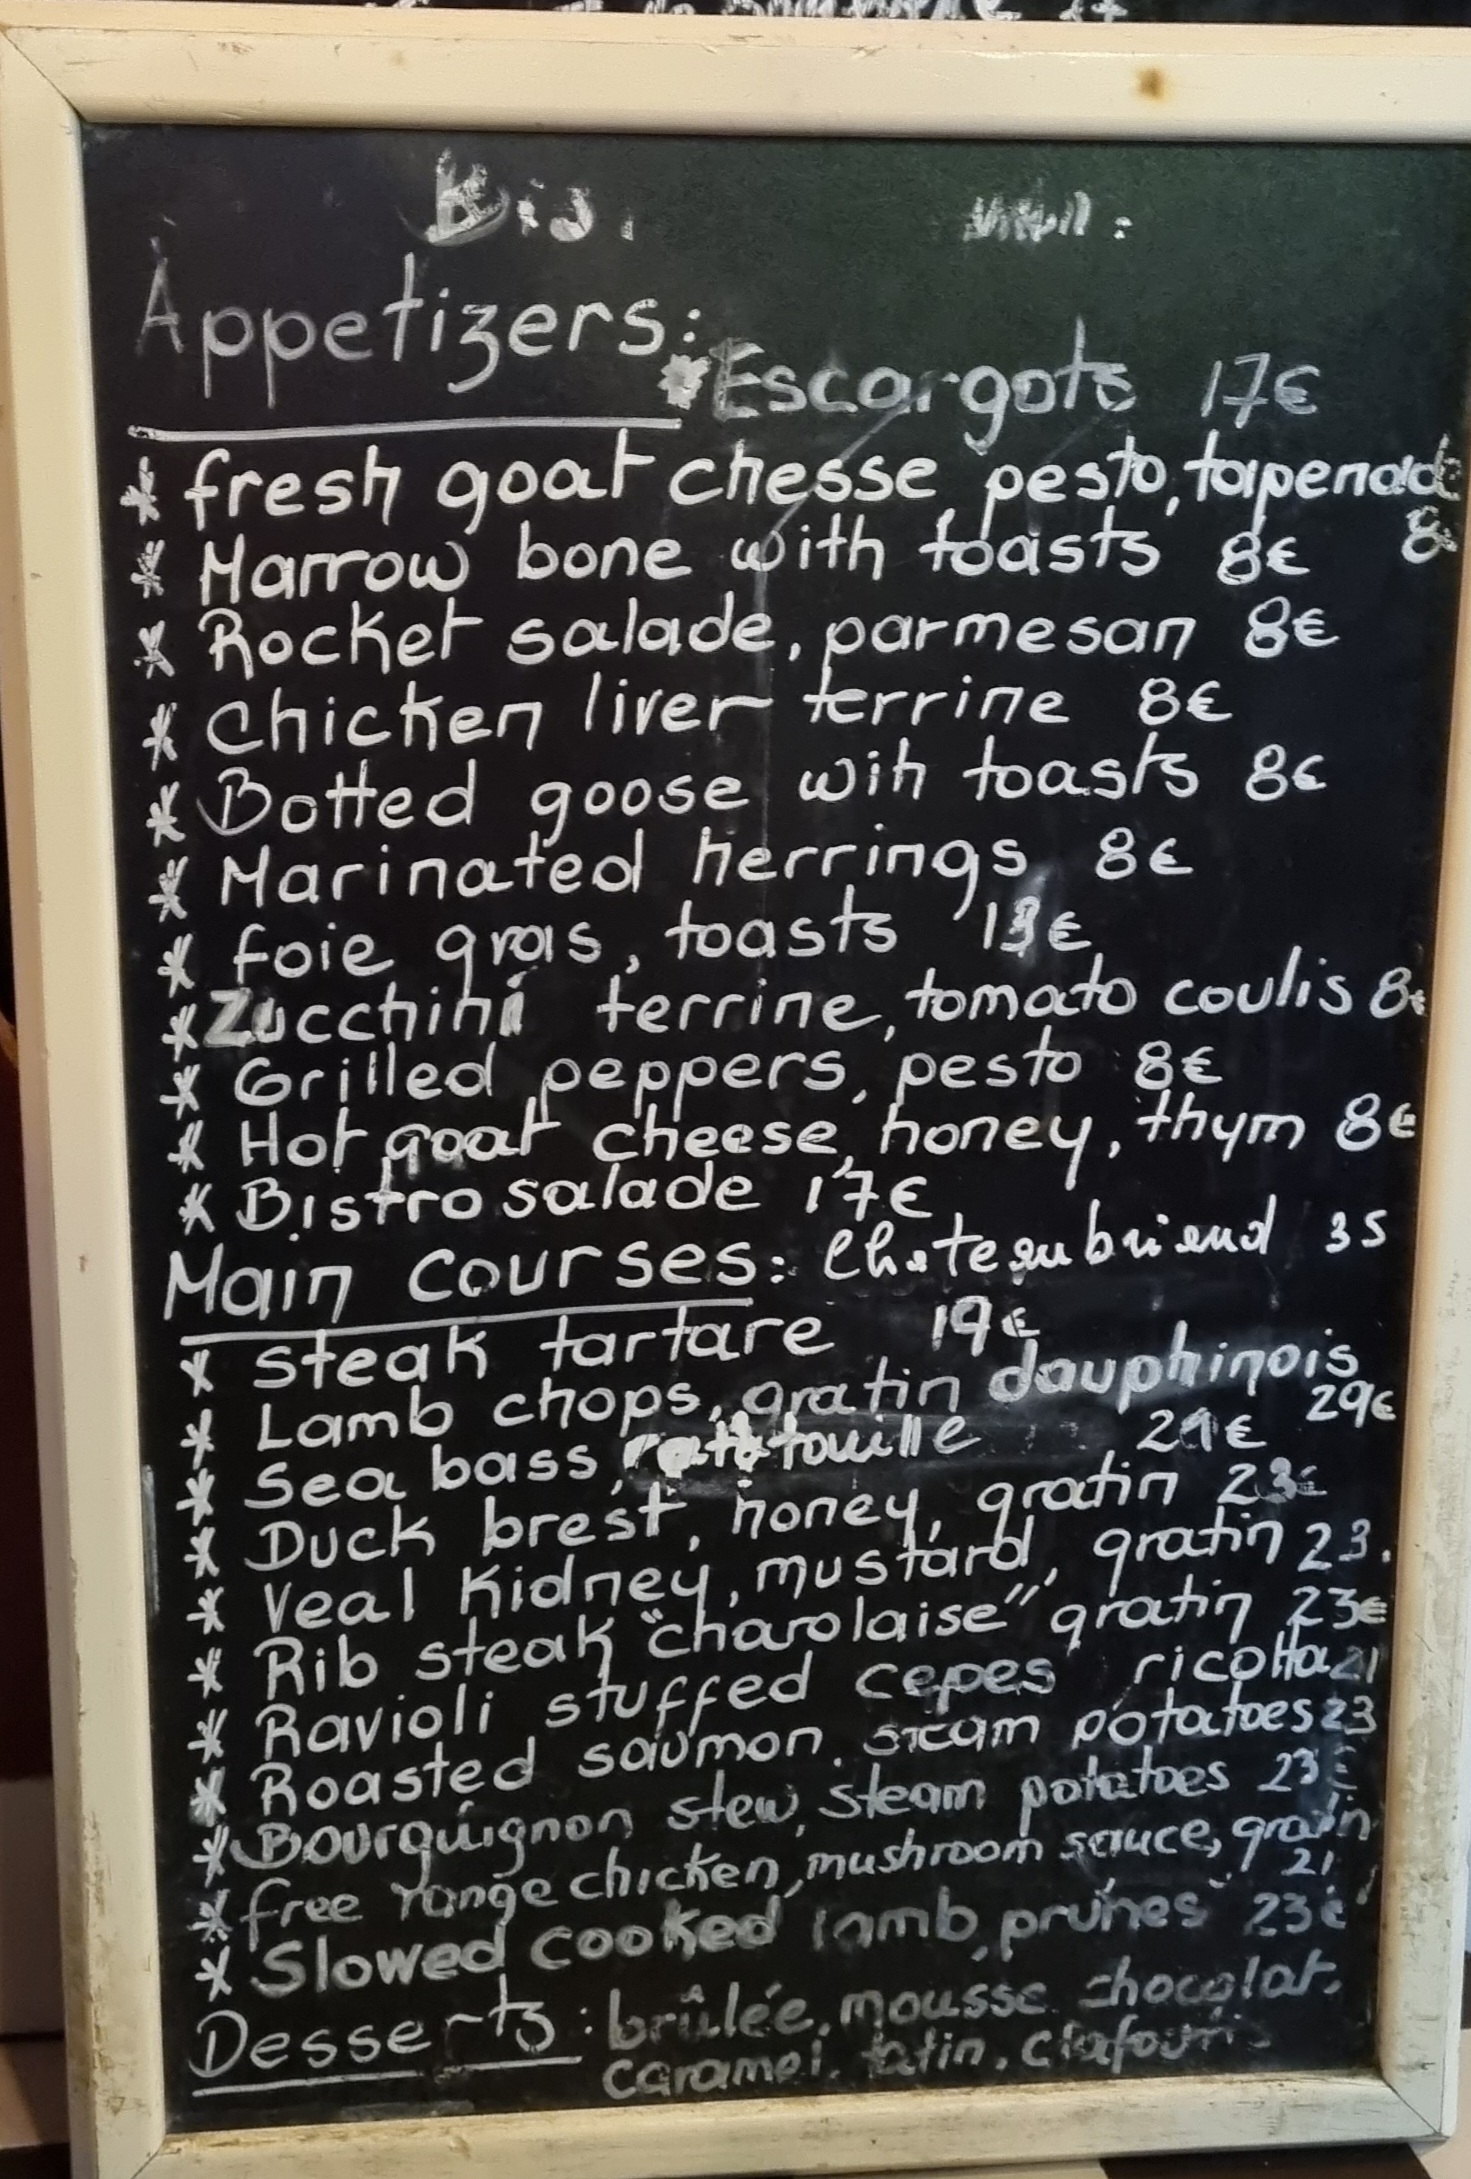 Appetizers:
* Escargots 17€
* fresh goat chesse, pesto, tapenade
8
* Marrow bone with toasts 8€
* Rocket salade, parmesan 8€
* Chicken liver terrine 8€
* Botted goose wih toasts 8€
* Marinated herrings 8€
* foie gras, toasts 13€
* Zucchini terrine, tomato coulis 8€
* Grilled peppers, pesto 8€
* Hot goat cheese, honey, thym 8€
* Bistro salade 17€
Main courses: Chateaubriand 35
* Steak tartare 19€
* Lamb chops, gratin dauphinois
29€
* Sea bass, ratatouille 21€
* Duck brest, honey, gratin 23€
* Veal Kidney, mustard, gratin 23.
* Rib steak "charolaise" gratin 23€
* Ravioli stuffed cepes ricotta 21
* Roasted saumon, steam potatoes 23
* Bourguignon stew, steam potatoes 23€
* free range chicken, mushroom sauce, gratin
21
* Slowed cooked lamb, prunes 23€
Desserts: brûlée, mousse chocolat,
caramel, tatin, clafoutis